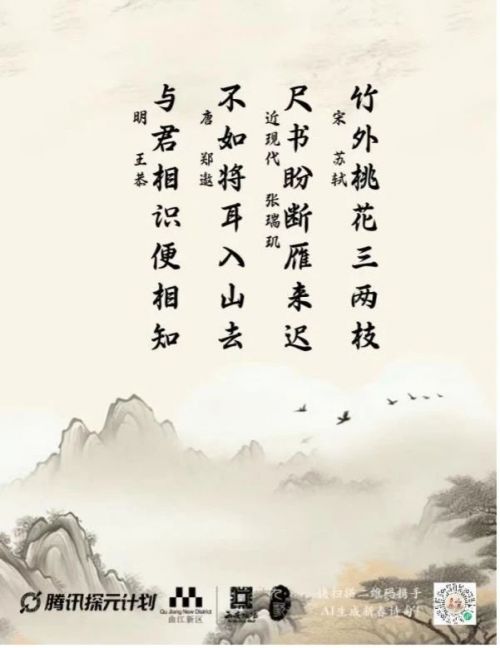 竹外桃花三两枝
宋 苏轼
尺书盼断雁来迟
近现代 张瑞玑
不如将耳入山去
唐 郑遨
与君相识便相知
明 王恭
腾讯探元计划
Qu Jiang New District
曲江新区
快扫描二维码携手
AI生成新春诗句！